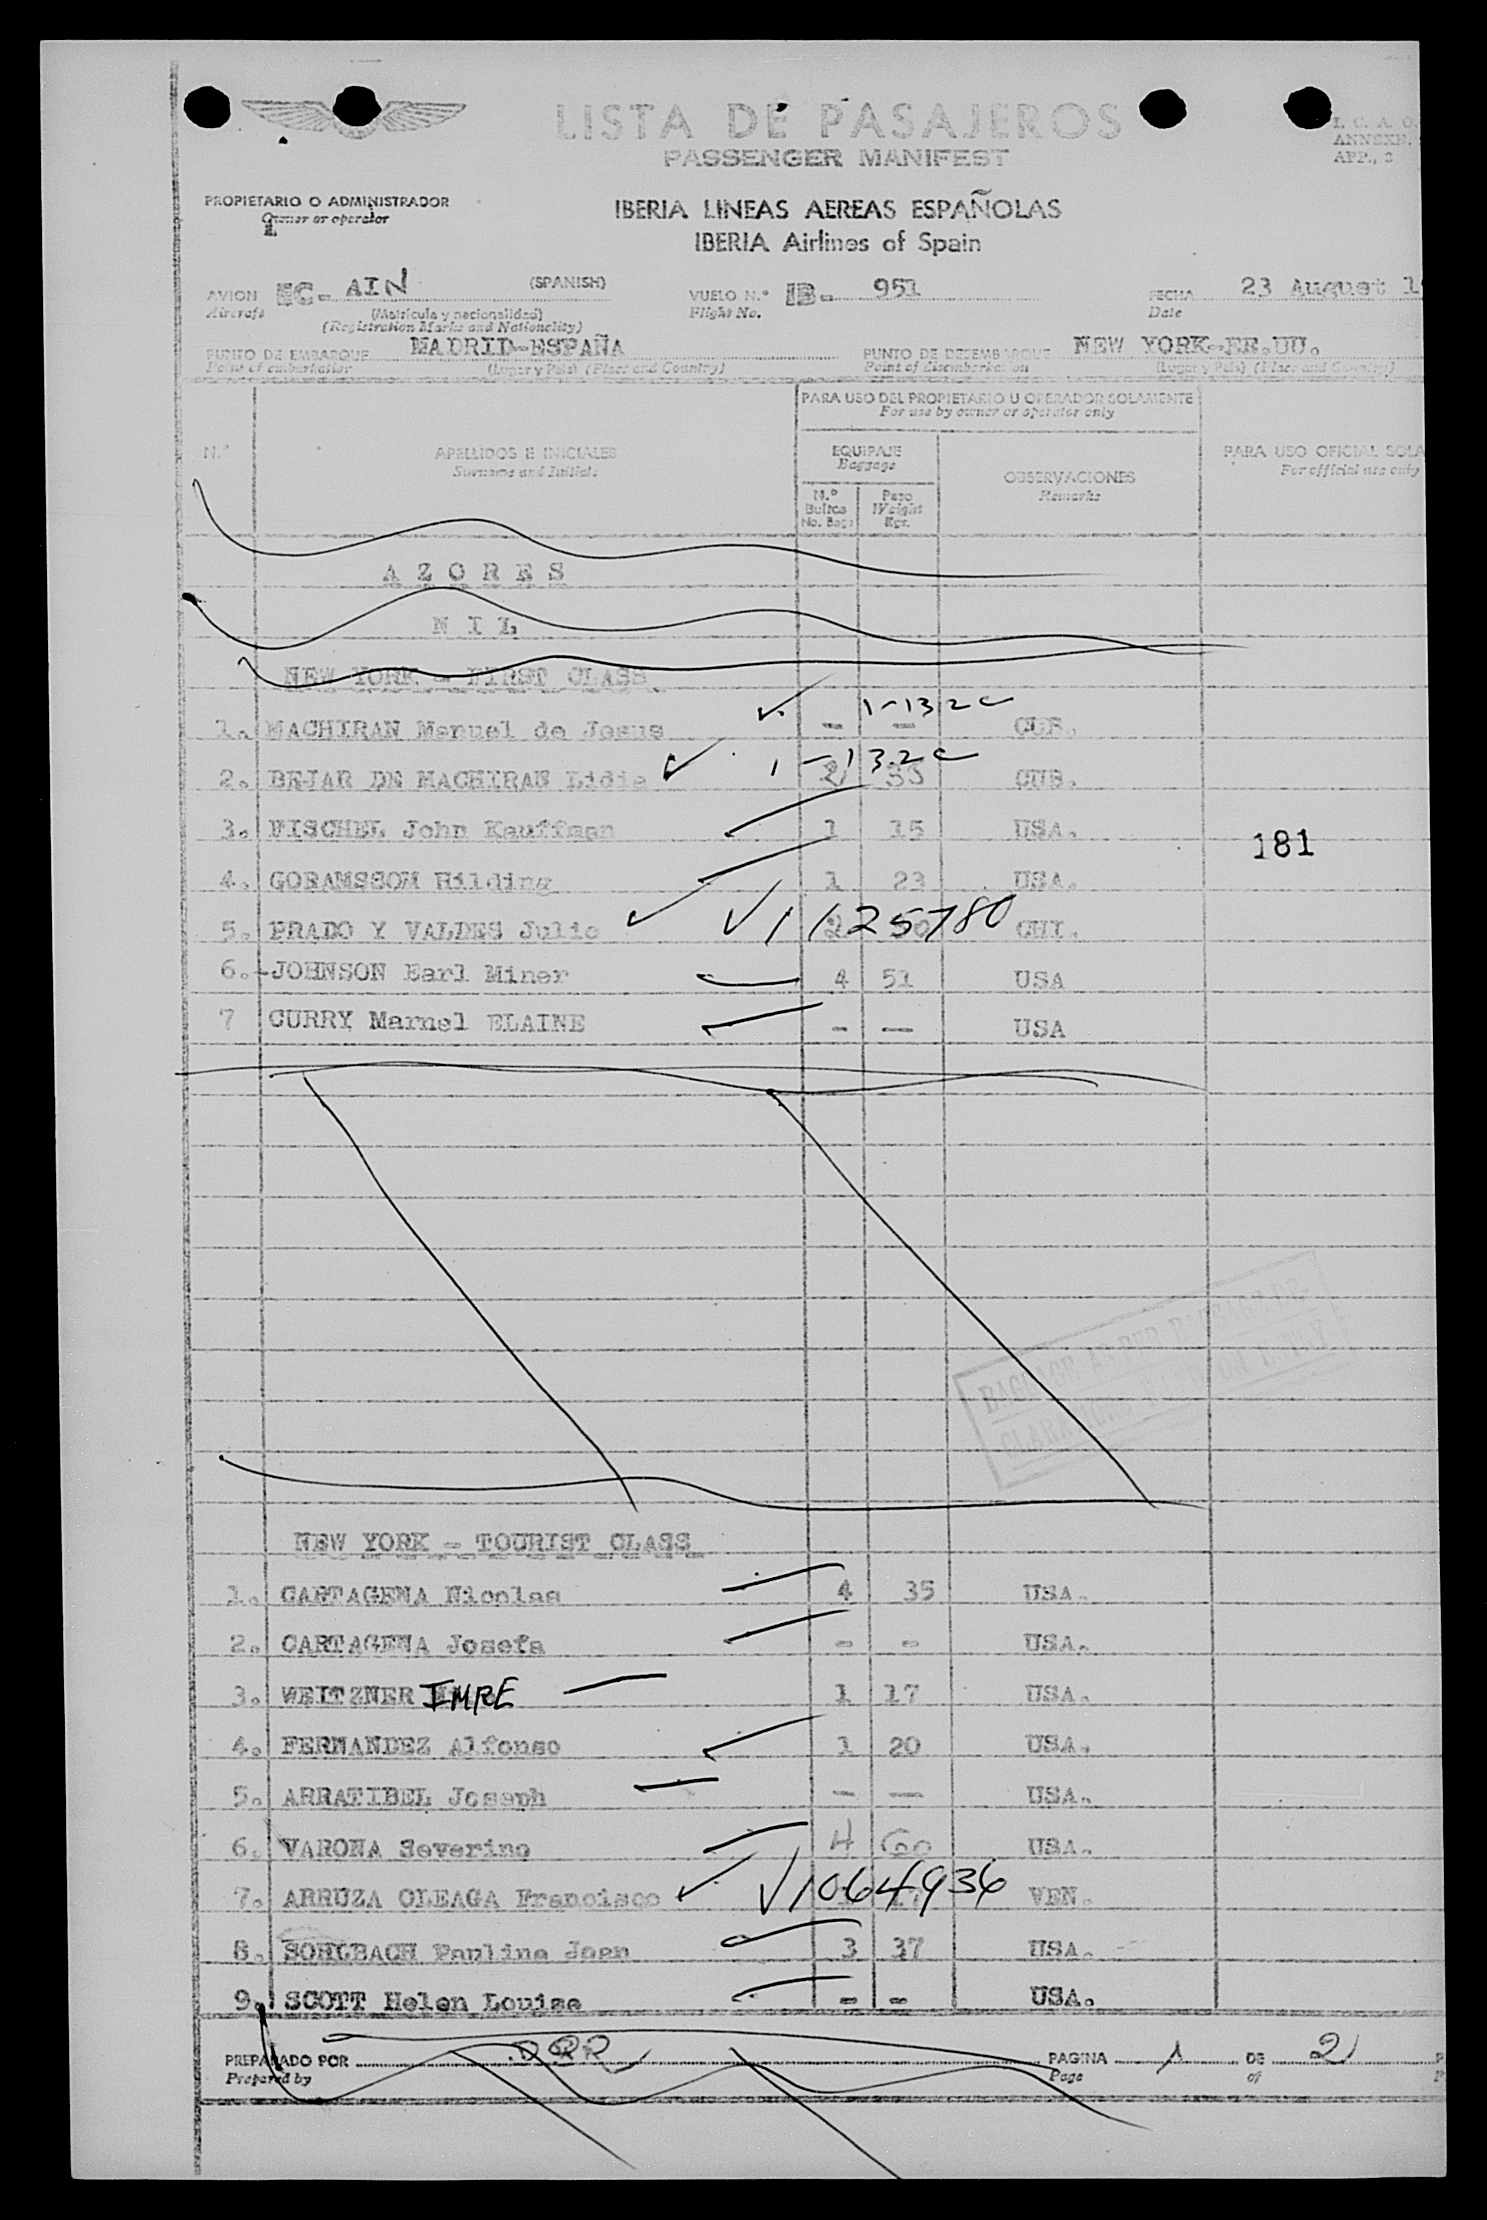 LISTA DE PASAJEROS
PASSENGER MANIFEST
I. C. A. O.
ANNEXE.
APP., 3
PROPIETARIO O ADMINISTRADOR
Owner or operator
IBERIA LINEAS AEREAS ESPAÑOLAS
IBERIA Airlines of Spain
AVION EC- AIN (SPANISH) VUELO N.° IB- 951 FECHA 23 August 1
Aircraft (Matrícula y nacionalidad) Flight No. Date
(Registration Marks and Nationality)
PUNTO DE EMBARQUE MADRID-ESPAÑA PUNTO DE DESEMBARQUE NEW YORK-EE.UU.
Point of embarkation (Lugar y País) (Place and Country) Point of disembarkation (Lugar y País) (Place and Country)
PARA USO DEL PROPIETARIO U OPERADOR SOLAMENTE
For use by owner or operator only
N.° APELLIDOS E INICIALES EQUIPAJE OBSERVACIONES PARA USO OFICIAL SOLA
Surname and Initial. Baggage Remarks For official use only
N.° Bultos Peso
No. Bags Weight Kgs.
AZORES
NIL
NEW YORK - FIRST CLASS
1. MACHIRAN Manuel de Jesus - - 1-132c CUB.
2. BEJAR DE MACHIRAN Lidia 2 35 1-132c CUB.
3. FISCHEL John Kauffman 1 15 USA.
181
4. GORANSSOM Hilding 1 23 USA.
5. PRADO Y VALDES Julio 2 11125780 CHI.
6.-JOHNSON Earl Miner 4 51 USA
7 CURRY Marnel ELAINE - - USA
BAGGAGE AS PER BAGGAGE DE-
CLARATIONS
NEW YORK - TOURIST CLASS
1. CARTAGENA Nicolas 4 35 USA.
2. CARTAGENA Josefa - - USA.
3. WEITZNER IMRE 1 17 USA.
4. FERNANDEZ Alfonso 1 20 USA.
5. ARRATIBEL Joseph - - USA.
6. VARONA Severino 4 60 USA.
7. ARRUZA OLEAGA Francisco 10644936 VEN.
8. SOHLBACH Pauline Joan 3 37 USA.
9. SCOTT Helen Louise - - USA.
PREPARADO POR PAGINA 1 DE 2
Prepared by Page of